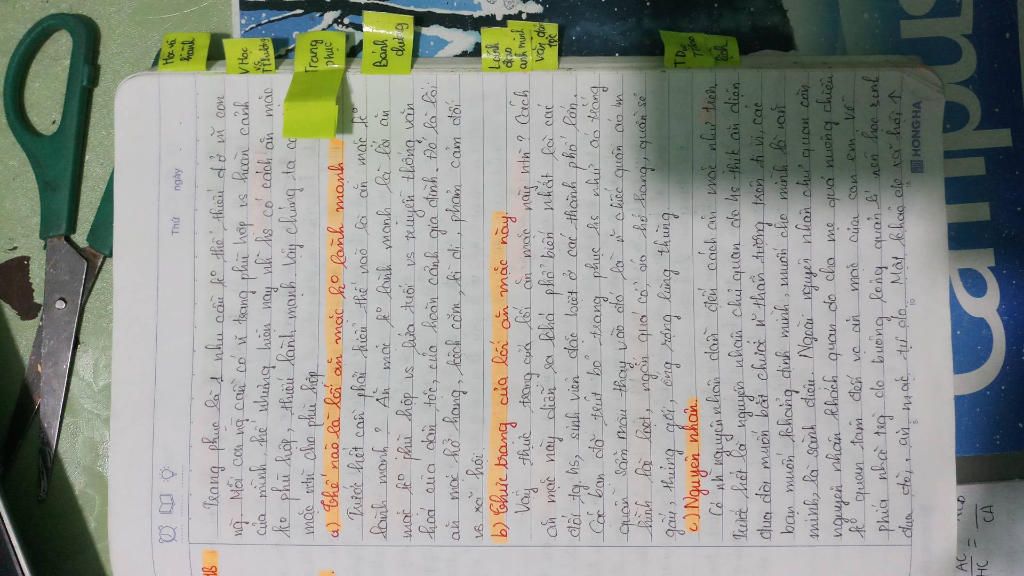 Học và hành
V Học T Thương
Trang phục
Bánh chưng
Lãnh đạo anh minh vận dân tộc
Thứ ngày
TB
Trang phục là 1 nhu cầu ko thể thiếu đ/v con
ng. Mỗi con ng cần có v trang phù hợp vs hoàn cảnh
của mình, thế nhưng hiện nay nh hs có cách ăn mặc
ko phù hợp, thiếu lành mạnh vậy chúng ta cần
mặc ntn cho phù hợp
a) Thế nào là lối ăn mặc ko lành mạnh
Trước hết cần phải hiểu thế nào là ăn mặc ko
lành mạnh? Ăn mặc ko lành mạnh là lối ăn
mặc ko phù hợp vs lứa tuổi vs truyền thống văn
hóa của dân tộc, của hoàn cảnh gia đình. Đó là lối
ăn mặc hở hang, lách côn, bị dị, phản cảm đối
vs xã hội
b) Thực trạng của lối ăn mặc này
Vậy thực trạng của lối ăn mặc này ntn? Cách
ăn mặc này diễn ra khá phổ biến nhất là các
đối tg hs, sinh viên đặc biệt ở các thành phố lớn.
Các bạn đã trút bỏ trang phục hs như áo trắng
quần sẫm màu thay vào đó là n chiếc quần áo in
hình lòe loẹt, ngắn quá cỡ, áo hở hang, quần xé
gấu, thủng gối, ống rộng lùng thùng
c) Nguyên nhân
Có nh nguyên nhân dẫn đến cách ăn mặc như trên
Trước hết là nguyên nhân chủ quan do hs thik ăn diện
đua đòi muốn bắt chước n thần tượng trên ti vi, các
bạn muốn khẳng định mình, muốn cho mình là văn
minh, là sành điệu. Ngoài nguyên nhân chủ quan còn
nguyên nhân khách quan do cha mẹ quá nuông chiều
ko quan tâm đến v ăn mặc của con em. Về
phía nhà trg do buông lỏng quản lí nên học sinh
đua đòi, ăn mặc tự do. Mặt khác do xã hội ↑
HONG HA
Campus
AC
HC
=
CA